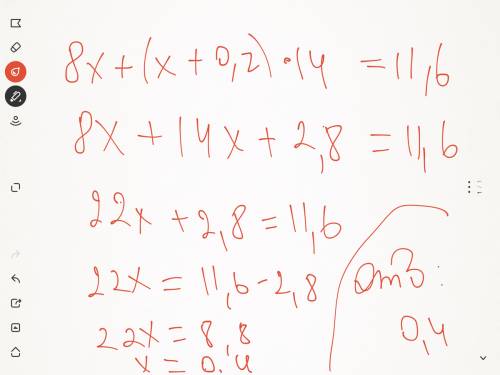 8x+(x+0,2)·14 =11,6
8x+14x+2,8=11,6
22x+2,8=11,6
22x=11,6-2,8
22x=8,8
x=0,4
Отв:
0,4